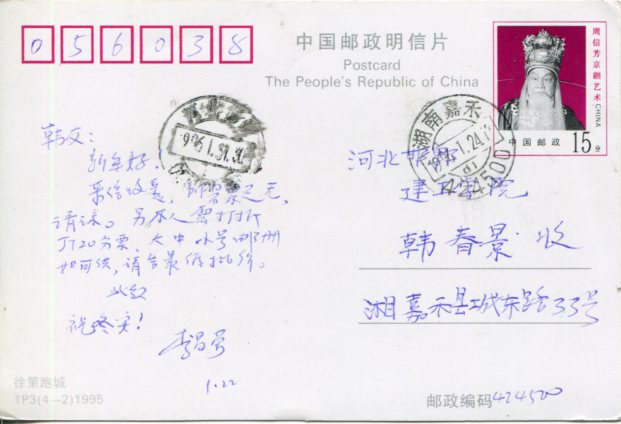 056038
中国邮政明信片
Postcard
The People's Republic of China
周信芳京剧艺术
CHINA
中国邮政
15分
湖南嘉禾
1996.1.24
424500
1996.1.31
韩文：
新年好！
来信收悉，所需票已无，
请谅。另本人需打折
JT20分票，大中小号邮册
如可供，请告最低批价。
此致
祝冬安！
1.22
河北邯郸
建工学院
韩春景 收
湘嘉禾县城东路33号
邮政编码424500
徐策跑城
TP3(4—2)1995